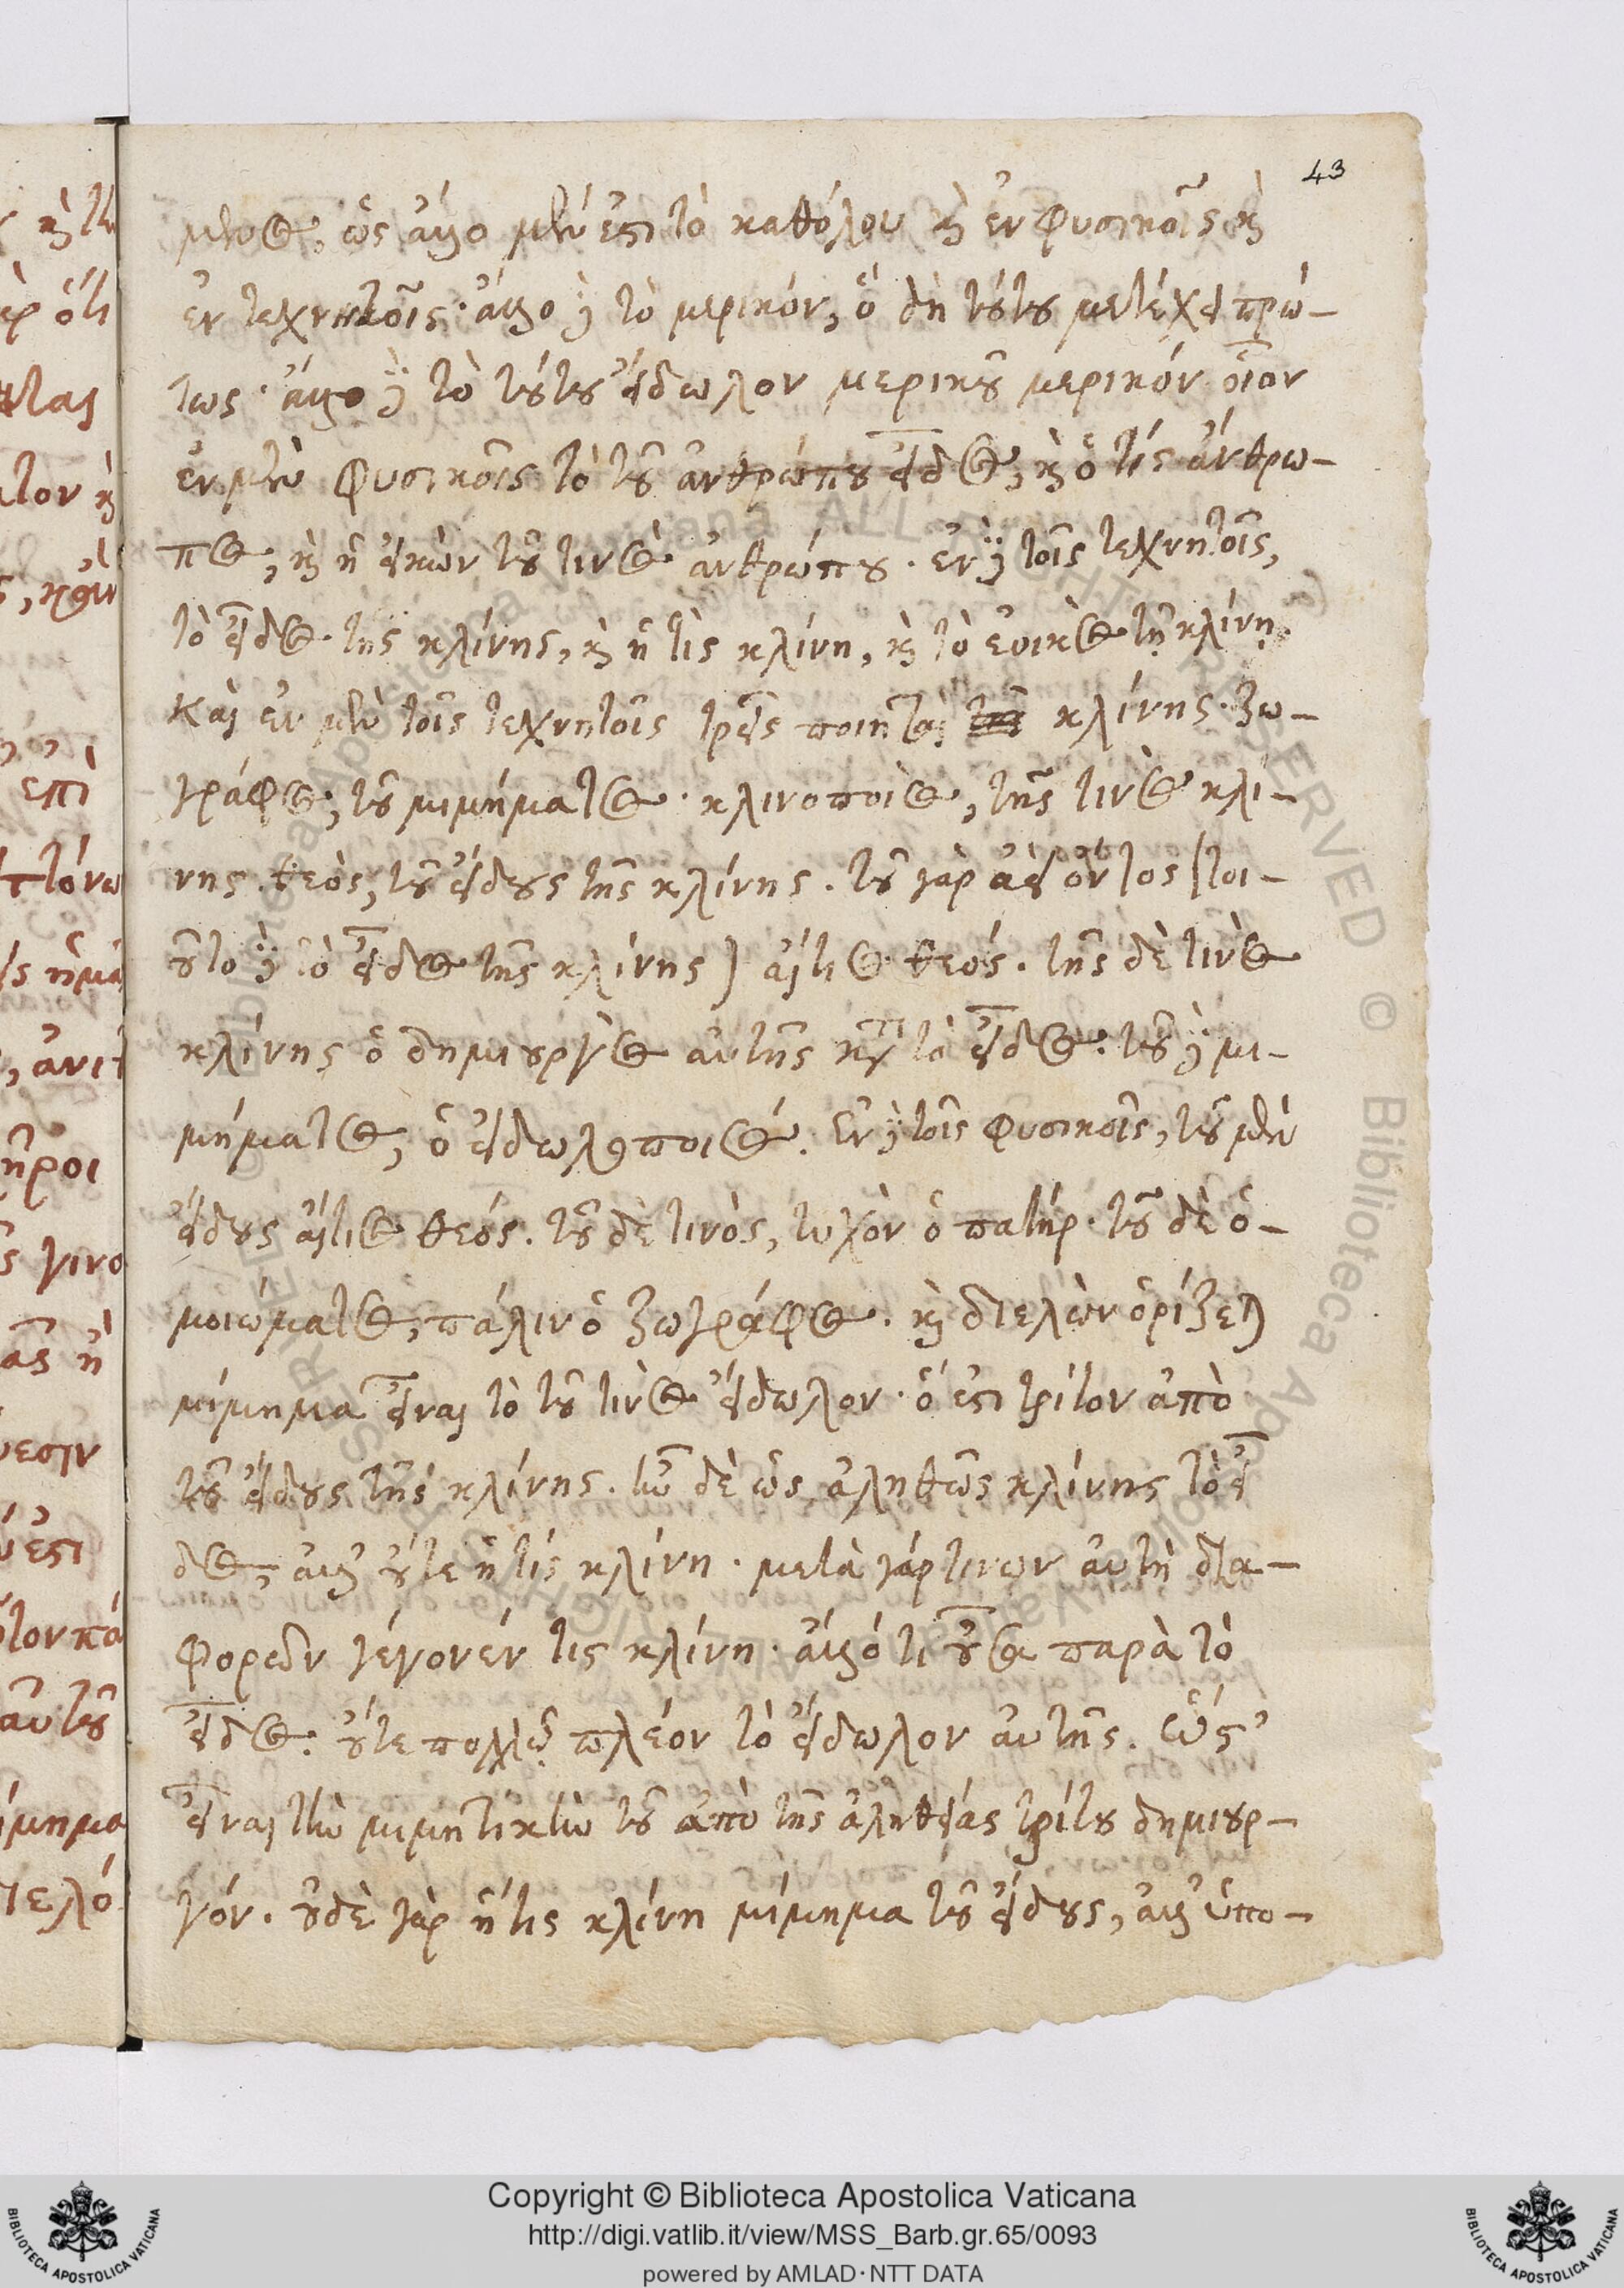 43
μενος, ὡς ἄλλο μέν ἐστι τὸ καθόλου καὶ ἐν φυσικοῖς καὶ
ἐν τεχνητοῖς· ἄλλο δὲ τὸ μερικόν, ὃ δὴ τούτου μετέχει πρώ-
τως· ἄλλο δὲ τὸ τούτου εἴδωλον μερικοῦ μερικόν· οἷον
ἐν μὲν φυσικοῖς τὸ τοῦ ἀνθρώπου εἶδος, καὶ ὁ τίς ἄνθρω-
πος, καὶ ἡ εἰκὼν τοῦ τινὸς ἀνθρώπου. ἐν δὲ τοῖς τεχνητοῖς,
τὸ εἶδος τῆς κλίνης, καὶ ἡ τὶς κλίνη, καὶ τὸ ἐοικὸς τῇ κλίνῃ.
Καὶ ἐν μὲν τοῖς τεχνητοῖς τρεῖς ποιηταὶ κλίνης. ζω-
γράφος, τοῦ μιμήματος· κλινοποιὸς, τῆς τινὸς κλί-
νης. θεὸς, τοῦ εἴδους τῆς κλίνης. τοῦ γὰρ ἀεὶ ὄντος (τοι-
οῦτο δὲ τὸ εἶδος τῆς κλίνης) αἴτιος θεός. τῆς δὲ τινὸς
κλίνης ὁ δημιουργὸς αὐτῆς κατὰ τὸ εἶδος. τοῦ δὲ μι-
μήματος, ὁ εἰδωλοποιός. Ἐν δὲ τοῖς φυσικοῖς, τοῦ μὲν
εἴδους αἴτιος θεός. τοῦ δὲ τινὸς, τυχὸν ὁ πατήρ. τοῦ δὲ ὁ-
μοιώματος, πάλιν ὁ ζωγράφος. καὶ διελὼν ὁρίζεται
μίμημα εἶναι τὸ τοῦ τινὸς εἴδωλον· ὅ ἐστι τρίτον ἀπὸ
τοῦ εἴδους τῆς κλίνης. ἦν δὲ ὡς ἀληθῶς κλίνης τὸ εἶ
δος, ἀλλ' οὔτε ἡ τίς κλίνη. μετὰ γάρ τινων αὐτὴ δια-
φορῶν γέγονέν τις κλίνη. ἄλλό τι οὖσα παρὰ τὸ
εἶδος. οὔτε πολλῷ πλέον τὸ εἴδωλον αὐτῆς. ὥστ'
εἶναι τὴν μιμητικὴν τοῦ ἀπὸ τῆς ἀληθείας τρίτου δημιουρ-
γόν. οὐδὲ γὰρ ἥ τις κλίνη μίμημα τοῦ εἴδους, ἀλλ' ὑπο-
Copyright © Biblioteca Apostolica Vaticana
http://digi.vatlib.it/view/MSS_Barb.gr.65/0093
powered by AMLAD·NTT DATA